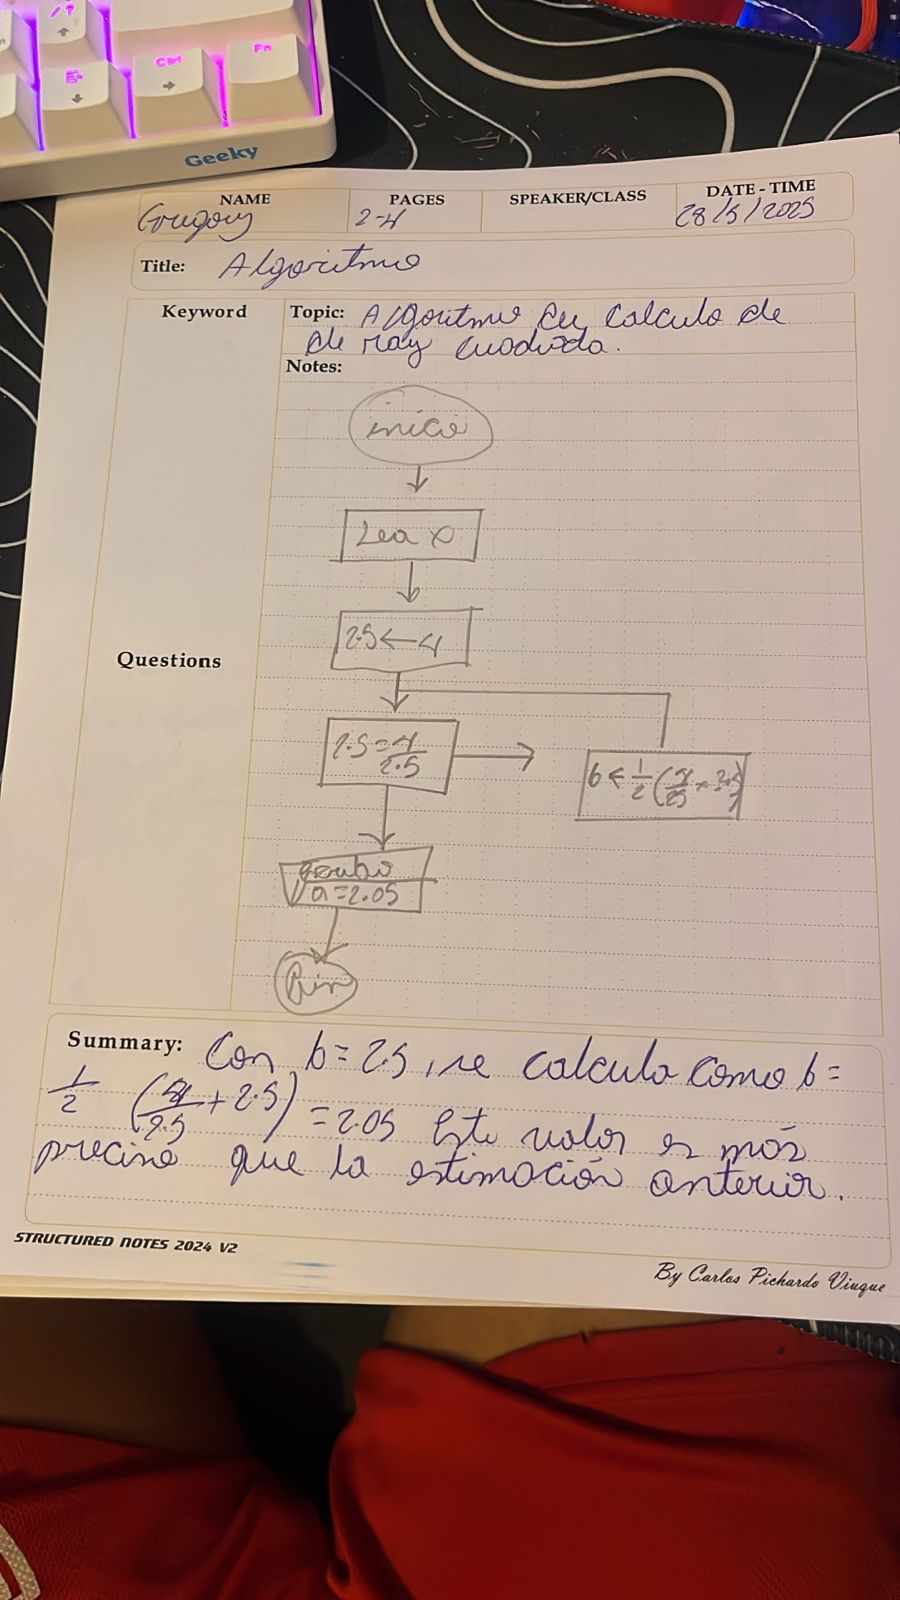 Ctrl
Fn
Geeky
NAME
PAGES
SPEAKER/CLASS
DATE - TIME
Gregory
2-4
28/5/2025
Title: Algoritmo
Keyword
Topic: Algoritmo en calculo de
de raiz cuadrada.
Notes:
inicio
Lea x
2.5 ← 4
Questions
2.5 = 4/2.5
b ← 1/2 (4/25 + 2.5)
a = 2.05
Fin
Summary: Con b = 2.5, se calcula como b =
1/2 (4/2.5 + 2.5) = 2.05 Este valor es más
preciso que la estimación anterior.
STRUCTURED NOTES 2024 V2
By Carlos Pichardo Viuque